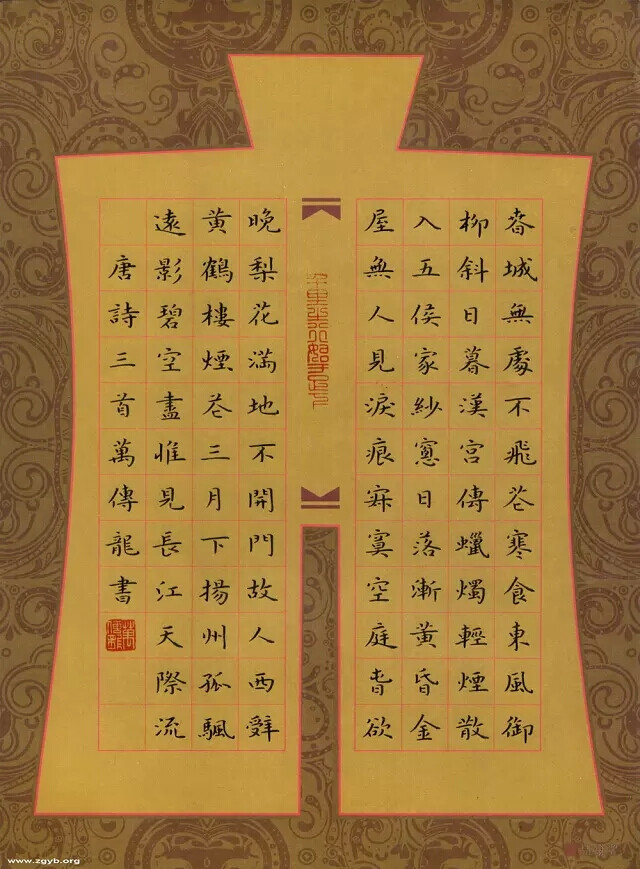 春城無處不飛花寒食東風御
柳斜日暮漢宮傳蠟燭輕煙散
入五侯家紗窻日落漸黃昏金
屋無人見淚痕寂寞空庭旾欲
千里之行始于足下
晚梨花滿地不開門故人西辭
黃鶴樓煙花三月下揚州孤颿
遠影碧空盡惟見長江天際流
唐詩三首萬傳龍書
www.zgyb.org